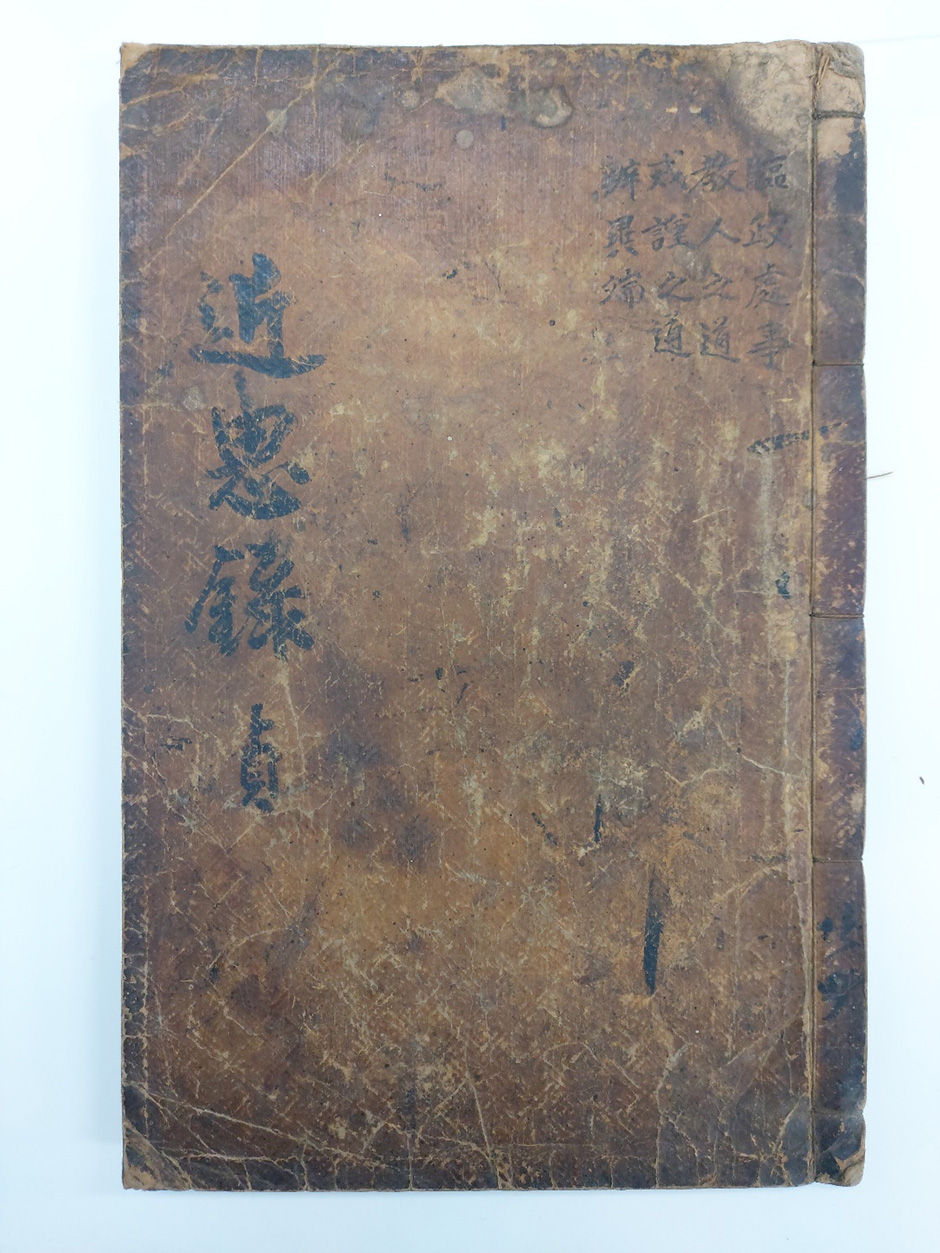 臨政處事
教人之道
戒謹之道
辨異端
近思錄 貞